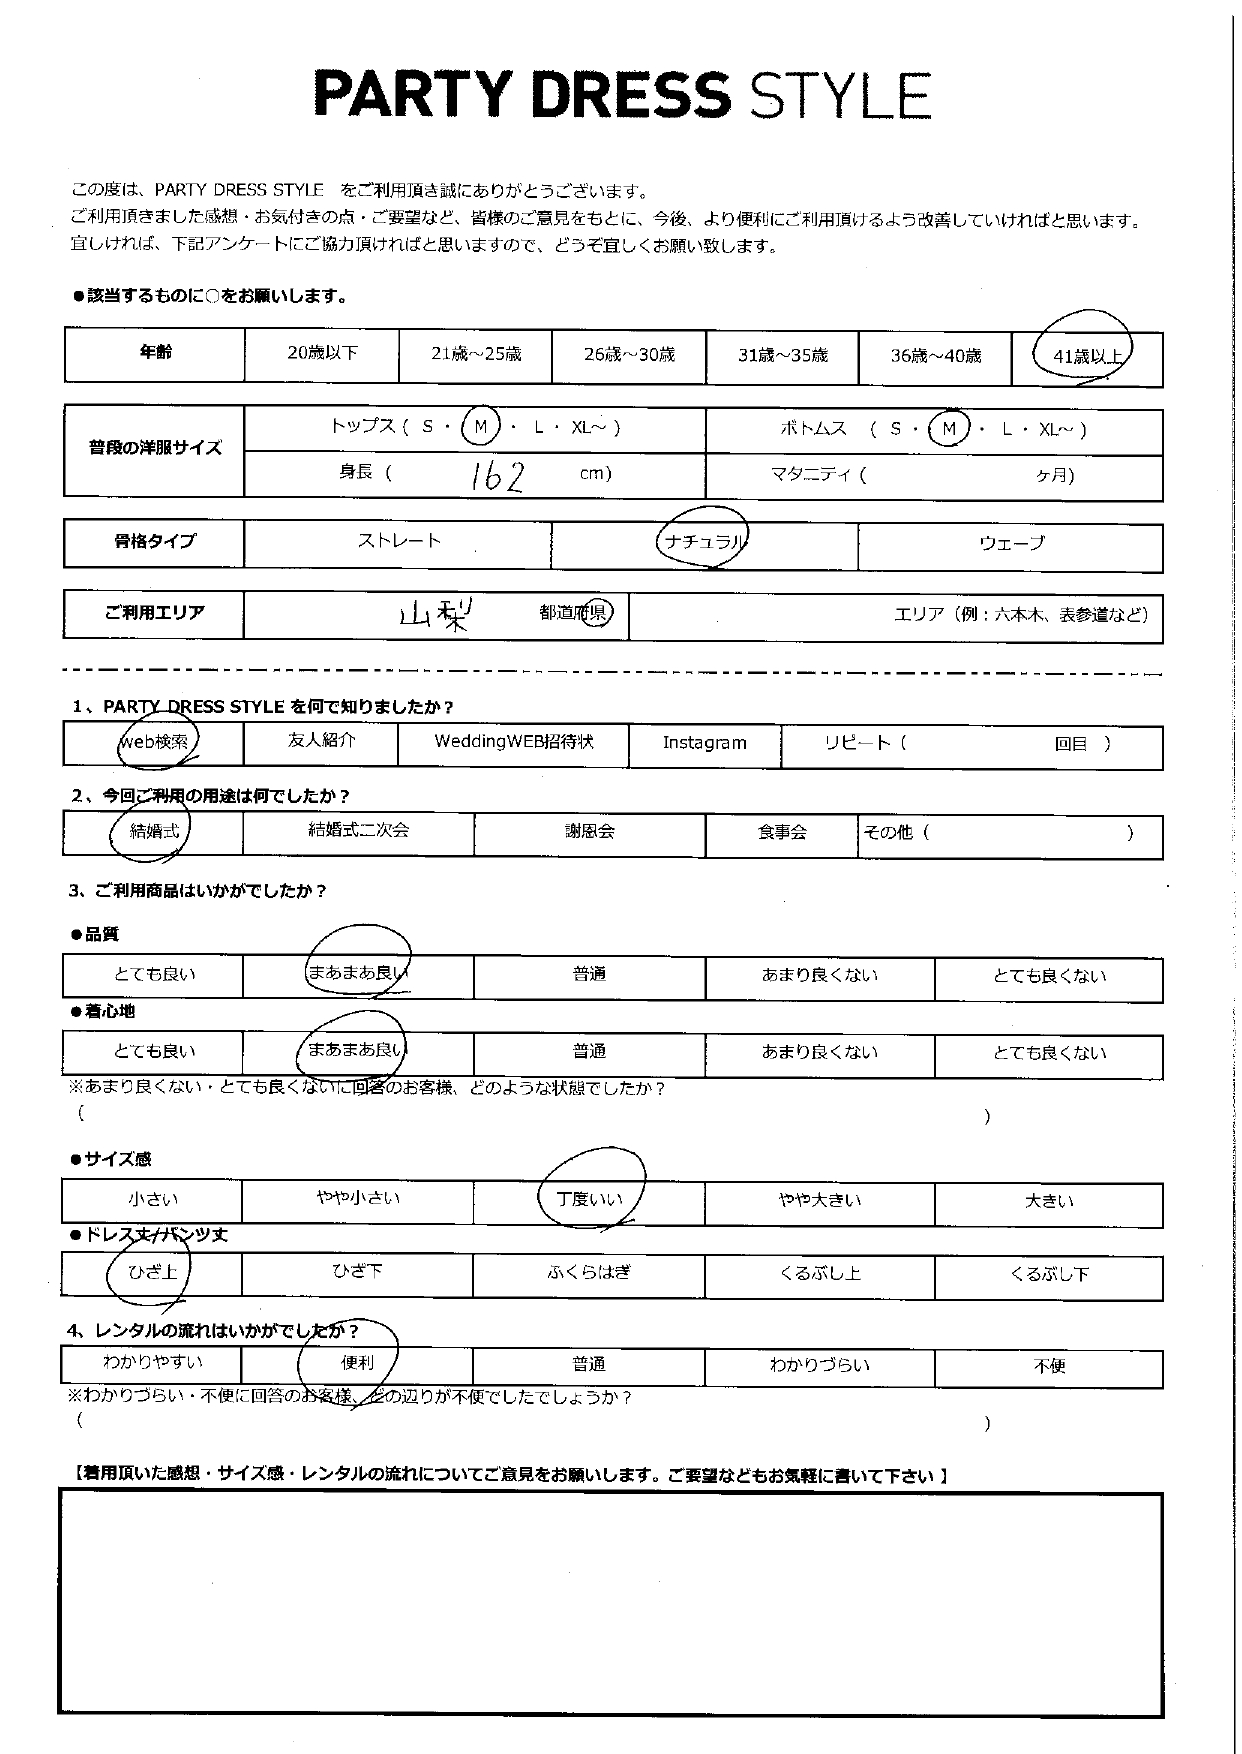 PARTY DRESS STYLE
この度は、PARTY DRESS STYLE をご利用頂き誠にありがとうございます。
ご利用頂きました感想・お気付きの点・ご要望など、皆様のご意見をもとに、今後、より便利にご利用頂けるよう改善していければと思います。
宜しければ、下記アンケートにご協力頂ければと思いますので、どうぞ宜しくお願い致します。
●該当するものに○をお願いします。
年齢 20歳以下 21歳～25歳 26歳～30歳 31歳～35歳 36歳～40歳 41歳以上
普段の洋服サイズ トップス ( S ・ M ・ L ・ XL～ ) ボトムス ( S ・ M ・ L ・ XL～ )
身長 ( 162 cm) マタニティ ( ヶ月)
骨格タイプ ストレート ナチュラル ウェーブ
ご利用エリア 山梨 都道府県 エリア（例：六本木、表参道など）
1、PARTY DRESS STYLE を何で知りましたか？
web検索 友人紹介 WeddingWEB招待状 Instagram リピート ( 回目 )
2、今回ご利用の用途は何でしたか？
結婚式 結婚式二次会 謝恩会 食事会 その他 ( )
3、ご利用商品はいかがでしたか？
●品質
とても良い まあまあ良い 普通 あまり良くない とても良くない
●着心地
とても良い まあまあ良い 普通 あまり良くない とても良くない
※あまり良くない・とても良くないに回答のお客様、どのような状態でしたか？
( )
●サイズ感
小さい やや小さい 丁度いい やや大きい 大きい
●ドレス丈/パンツ丈
ひざ上 ひざ下 ふくらはぎ くるぶし上 くるぶし下
4、レンタルの流れはいかがでしたか？
わかりやすい 便利 普通 わかりづらい 不便
※わかりづらい・不便に回答のお客様、どの辺りが不便でしたでしょうか？
( )
【着用頂いた感想・サイズ感・レンタルの流れについてご意見をお願いします。ご要望などもお気軽に書いて下さい 】